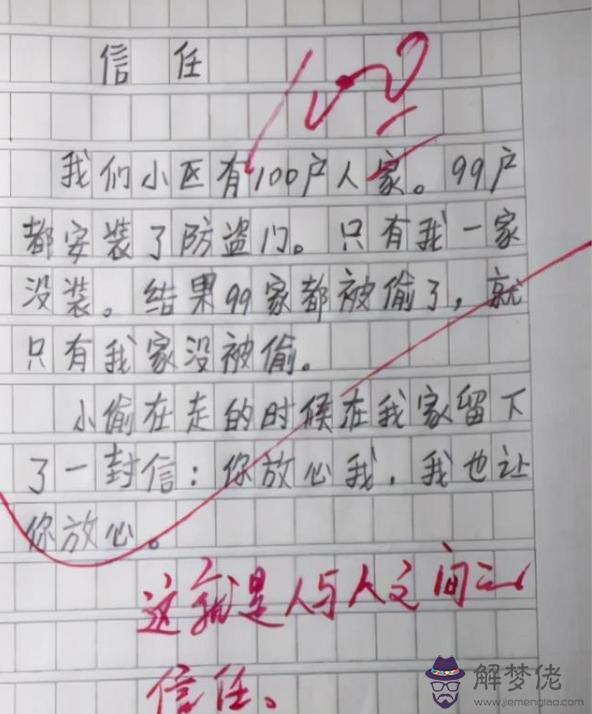 信任
100
我们小区有100户人家。99户
都安装了防盗门。只有我一家
没装。结果99家都被偷了，就
只有我家没被偷。
小偷在走的时候在我家留下
了一封信：你放心我，我也让
你放心。
这就是人与人之间的
信任。
解梦佬
www.jiemenglao.com